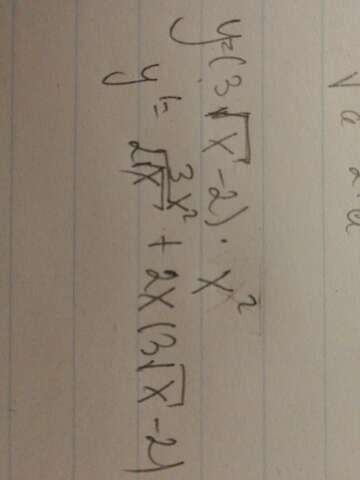 y=(3√x-2)·x²
y'= 3x²/2√x + 2x(3√x-2)